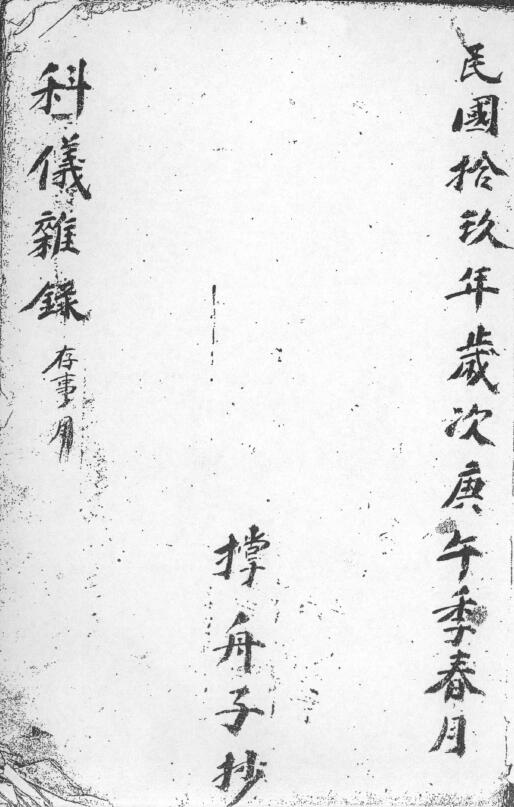 民國拾玖年歲次庚午季春月
撑舟子抄
科儀雜錄 存事用